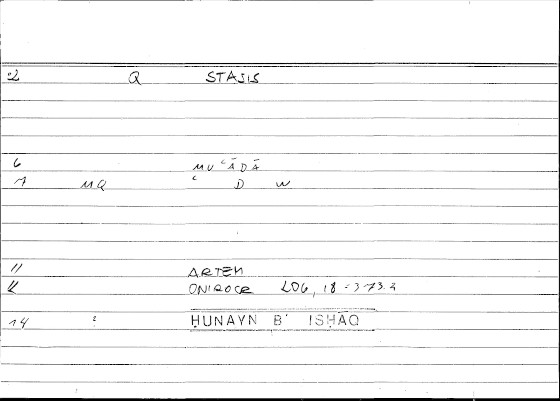 2 Q STASIS
6 MUʿĀDĀ
7 MQ ʿ D W
11 ARTEM
12 ONIROCR 206, 18 - 373.2
14 : ḤUNAYN B' ISḤĀQ